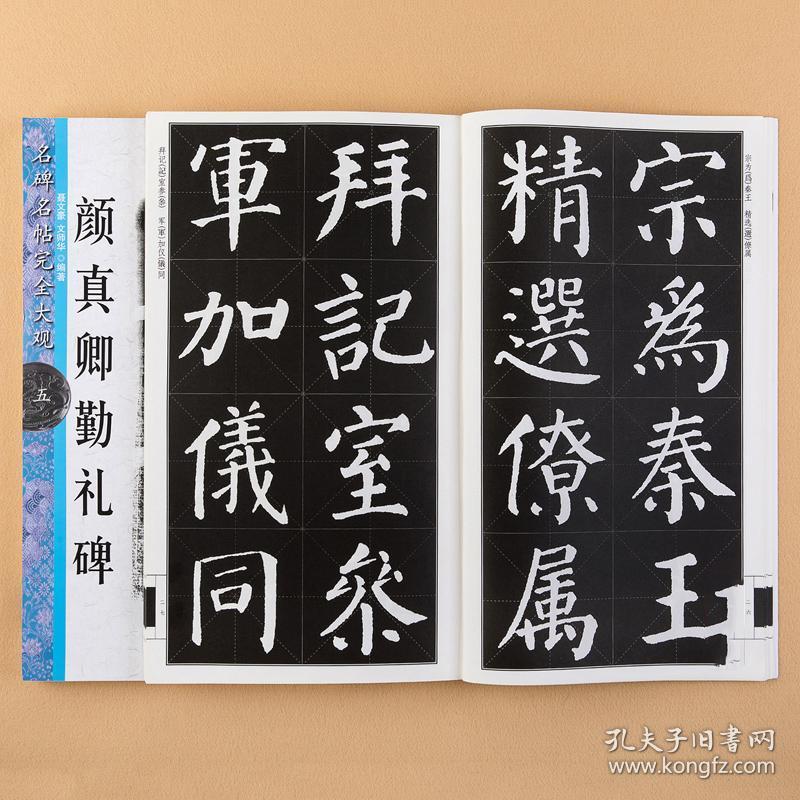 宗為秦王
精選僚属
拜記室参
軍加儀同
宗为(為)秦王 精选(選)僚属
拜记(記)室参(叅) 军(軍)加仪(儀)同
二六
二七
颜真卿勤礼碑
聂文豪 文师华 ◎编著
名碑名帖完全大观
五
孔夫子旧书网
www.kongfz.com